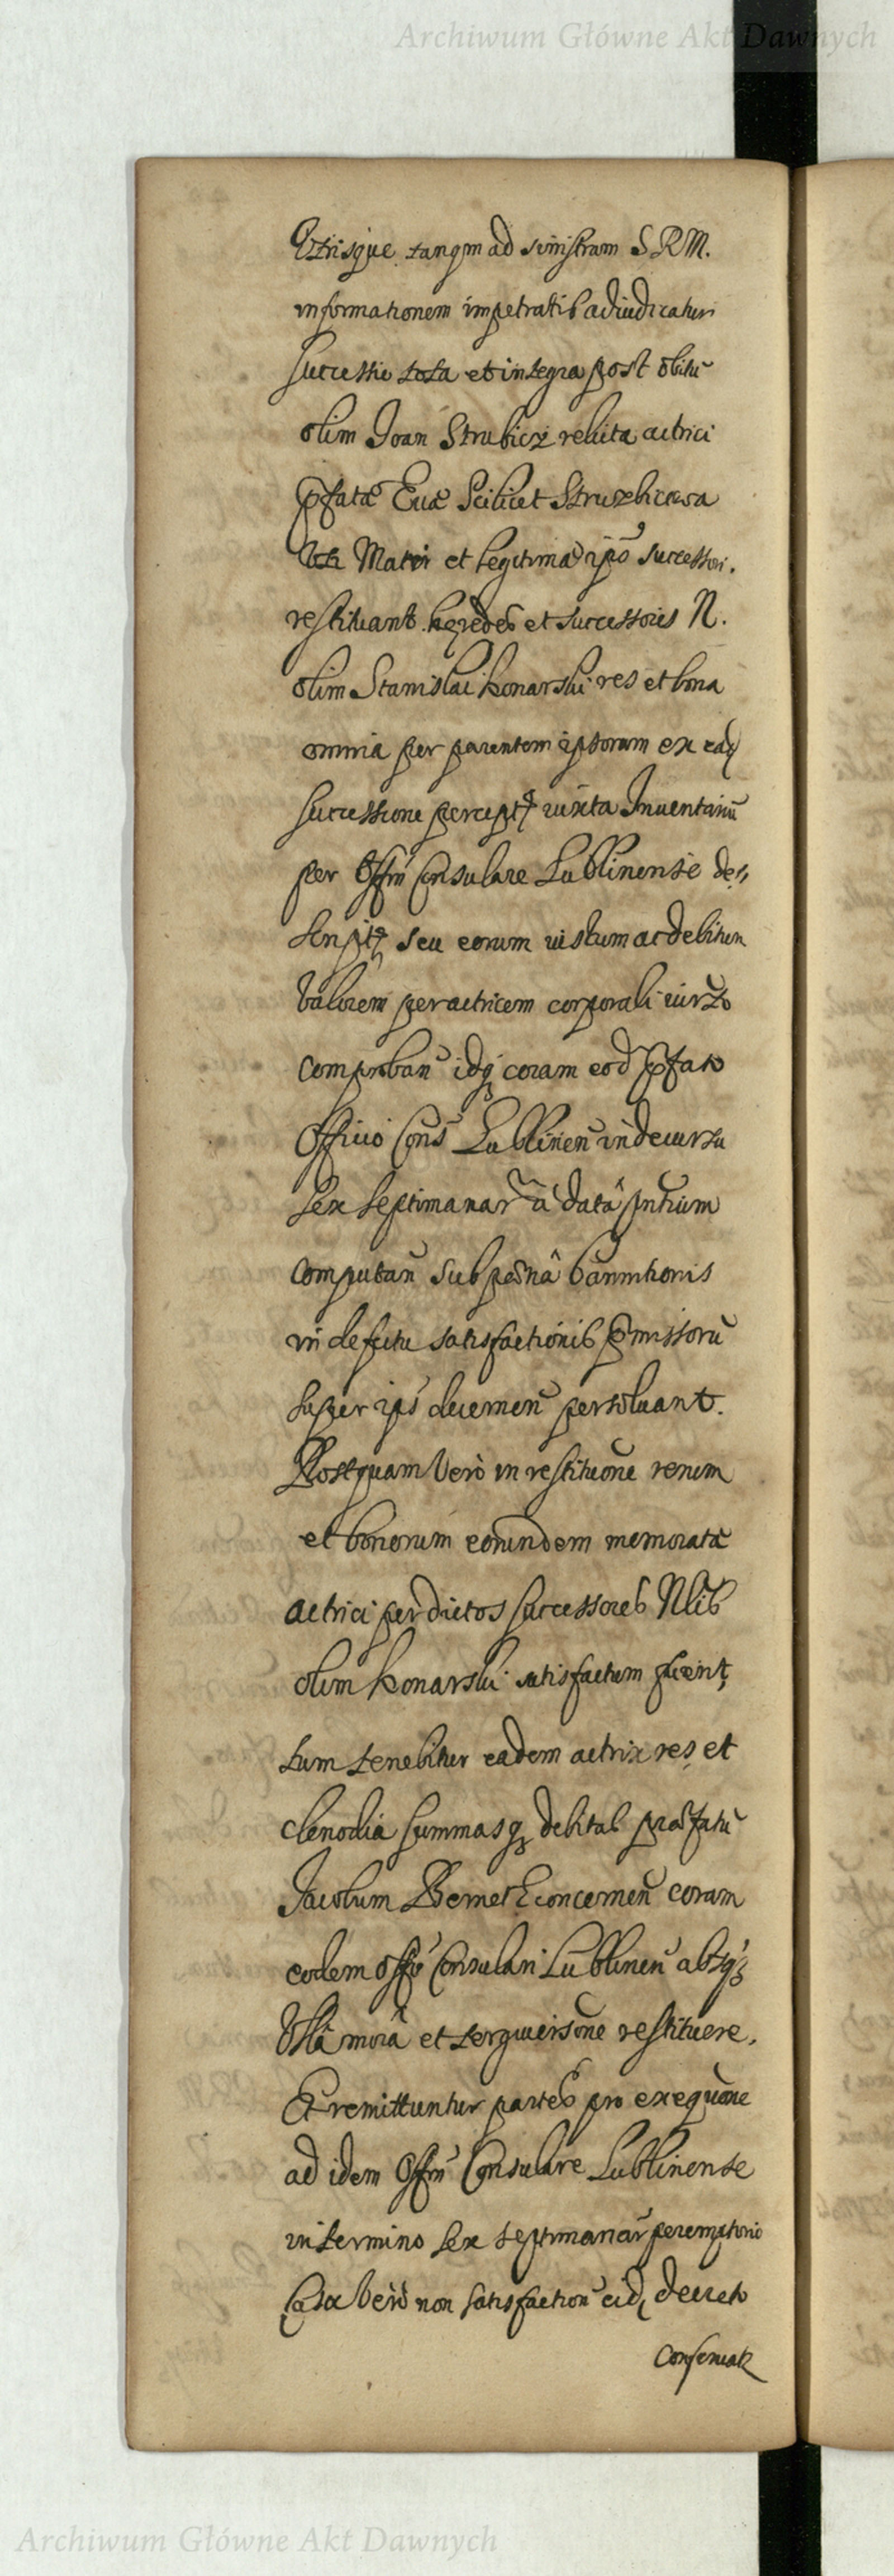 Archiwum Główne Akt Dawnych
Utrisque tanqm ad sinistram S R M.
informationem impetratis adiudicatur
successio tota et integra post obitū
olim Joan Strubicz relicta actrici
pfatæ Euæ Scilicet Struzbiczowa
Uti Matri et legitimæ ips successori.
restituant heredes et successores N.
olim Stanislai Konarski res et bona
omnia per parentem ipsorum ex ead
successione percept iuxta Inuentariū
per Offm Consulare Lublinense des
script seu eorum iustum ac debitum
Valorem per actricem corporali iurto
comproban idq coram eod pfato
Officio Cons Lublinen in decursu
sex septimanar â datâ pntium
computan sub pœnâ bannitionis
in defectu satisfactionis pmissorū
super ips decernen persoluant.
Postquam Verò in restitutione rerum
et bonorum eorundem memoratæ
actrici per dictos successores Nlis
olim Konarski satisfactum fuerit,
tum tenebitur eadem actrix res et
clenodia summasq debitas præfatū
Jacobum Bernet concernen coram
eodem offo Consulari Lublinen absq
Ullâ morâ et tergiuersone restituere.
Et remittuntur partes pro exequone
ad idem Offm Consulare Lublinense
in termino sex septimanar peremptorio
Casu Verò non satisfaction eid decreto
Conseruat
Archiwum Główne Akt Dawnych